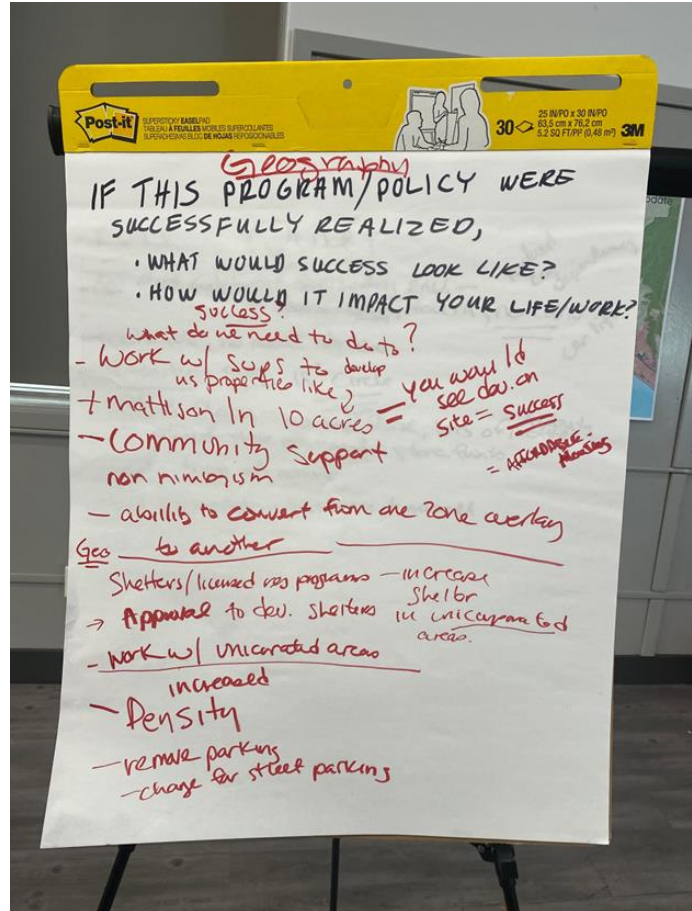 Post-it
SUPERSTICKY EASEL PAD
TABLEAU À FEUILLES MOBILES SUPERCOLLANTES
SUPERADHESIVAS BLOC DE HOJAS REPOSICIONABLES
30
25 IN/PO x 30 IN/PO
63,5 cm x 76,2 cm
5.2 SQ FT/PI² (0,48 m²)
3M
Geography
IF THIS PROGRAM/POLICY WERE
SUCCESSFULLY REALIZED,
• WHAT WOULD SUCCESS LOOK LIKE?
• HOW WOULD IT IMPACT YOUR LIFE/WORK?
success?
what do we need to do to?
- Work w/ Sups to develop
properties like
+ Mattison ln 10 acres = you would
see dev. on
site = success
= AFFORDABLE HOUSING
- Community Support
non nimbyism
- ability to convert from one zone overlay
to another
Geo
Shelters/licensed programs - increase
shelter
→ Approval to dev. shelters in unicorporated
areas.
- work w/ areas
increased
- Density
- remove parking
- charge for street parking